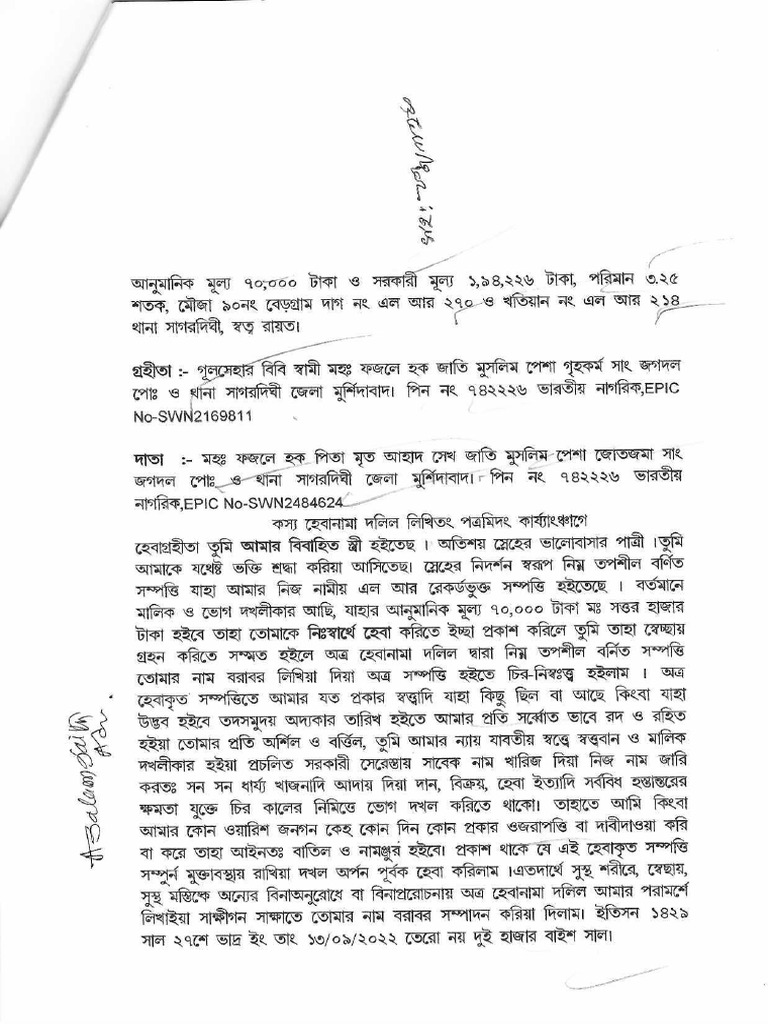 আনুমানিক মূল্য ৭০,০০০ টাকা ও সরকারী মূল্য ১,৯৪,২২৬ টাকা, পরিমান ৩.২৫
শতক, মৌজা ৯০নং বেড়গ্রাম দাগ নং এল আর ২৭০ ও খতিয়ান নং এল আর ২১৪
থানা সাগরদিঘী, স্বত্ব রায়ত।
গ্রহীতা :- গূলসেহার বিবি স্বামী মহঃ ফজলে হক জাতি মুসলিম পেশা গৃহকর্ম সাং জগদল
পোঃ ও থানা সাগরদিঘী জেলা মুর্শিদাবাদ। পিন নং ৭৪২২২৬ ভারতীয় নাগরিক,EPIC
No-SWN2169811
দাতা :- মহঃ ফজলে হক পিতা মৃত আহাদ সেখ জাতি মুসলিম পেশা জোতজমা সাং
জগদল পোঃ ও থানা সাগরদিঘী জেলা মুর্শিদাবাদ। পিন নং ৭৪২২২৬ ভারতীয়
নাগরিক,EPIC No-SWN2484624
কস্য হেবানামা দলিল লিখিতং পত্রমিদং কার্য্যাংঞ্চাগে
হেবাগ্রহীতা তুমি আমার বিবাহিত স্ত্রী হইতেছ । অতিশয় স্নেহের ভালোবাসার পাত্রী ।তুমি
আমাকে যথেষ্ট ভক্তি শ্রদ্ধা করিয়া আসিতেছ। স্নেহের নিদর্শন স্বরূপ নিম্ন তপশীল বর্ণিত
সম্পত্তি যাহা আমার নিজ নামীয় এল আর রেকর্ডভুক্ত সম্পত্তি হইতেছে । বর্তমানে
মালিক ও ভোগ দখলীকার আছি, যাহার আনুমানিক মূল্য ৭০,০০০ টাকা মঃ সত্তর হাজার
টাকা হইবে তাহা তোমাকে নিঃস্বার্থে হেবা করিতে ইচ্ছা প্রকাশ করিলে তুমি তাহা স্বেচ্ছায়
গ্রহন করিতে সম্মত হইলে অত্র হেবানামা দলিল দ্বারা নিম্ন তপশীল বর্নিত সম্পত্তি
তোমার নাম বরাবর লিখিয়া দিয়া অত্র সম্পত্তি হইতে চির-নিস্বঃত্ত্ব হইলাম । অত্র
হেবাকৃত সম্পত্তিতে আমার যত প্রকার স্বত্ত্বাদি যাহা কিছু ছিল বা আছে কিংবা যাহা
উদ্ভব হইবে তদসমুদয় অদ্যকার তারিখ হইতে আমার প্রতি সর্ব্বোত ভাবে রদ ও রহিত
হইয়া তোমার প্রতি অর্শিল ও বর্ত্তিল, তুমি আমার ন্যায় যাবতীয় স্বত্ত্বে স্বত্ত্ববান ও মালিক
দখলীকার হইয়া প্রচলিত সরকারী সেরেস্তায় সাবেক নাম খারিজ দিয়া নিজ নাম জারি
করতঃ সন সন ধার্য্য খাজনাদি আদায় দিয়া দান, বিক্রয়, হেবা ইত্যাদি সর্ববিধ হস্তান্তরের
ক্ষমতা যুক্তে চির কালের নিমিত্তে ভোগ দখল করিতে থাকো। তাহাতে আমি কিংবা
আমার কোন ওয়ারিশ জনগন কেহ কোন দিন কোন প্রকার ওজরাপত্তি বা দাবীদাওয়া করি
বা করে তাহা আইনতঃ বাতিল ও নামঞ্জুর হইবে। প্রকাশ থাকে যে এই হেবাকৃত সম্পত্তি
সম্পুর্ন মুক্তাবস্থায় রাখিয়া দখল অর্পন পূর্বক হেবা করিলাম ।এতদার্থে সুস্থ শরীরে, স্বেছায়,
সুস্থ মস্তিষ্কে অন্যের বিনাঅনুরোধে বা বিনাপ্ররোচনায় অত্র হেবানামা দলিল আমার পরামর্শে
লিখাইয়া সাক্ষীগন সাক্ষাতে তোমার নাম বরাবর সম্পাদন করিয়া দিলাম। ইতিসন ১৪২৯
সাল ২৭শে ভাদ্র ইং তাং ১৩/০৯/২০২২ তেরো নয় দুই হাজার বাইশ সাল।